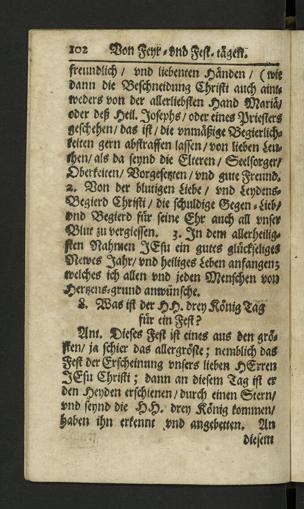 102 Von Feyr- vnd Fest-tägen.
freundlich / vnd liebenten Händen / (wie
dann die Beschneidung Christi auch aint-
weders von der allerliebsten Hand Mariä/
oder deß Heil. Josephs / oder eines Priesters
geschehen / das ist / die vnmäßige Begierlich-
keiten gern abstraffen lassen / von lieben Leu-
then / als da seynd die Elteren / Seelsorger/
Oberkeiten / Vorgesetzten / vnd gute Freund.
2. Von der blutigen Liebe / vnd Leydens-
Begierd Christi / die schuldige Gegen-Lieb/
vnd Begierd für seine Ehr auch all vnser
Blut zu vergiessen. 3. In dem allerheilig-
sten Nahmen JEsu ein gutes glückseliges
Newes Jahr / vnd heiliges Leben anfangen;
welches ich allen vnd jeden Menschen von
Hertzens-grund anwünsche.
8. Was ist der HH. drey König Tag
für ein Fest?
Ant. Dieses Fest ist eines aus den grö-
sten / ja schier das allergröste; nemblich das
Fest der Erscheinung vnsers lieben HErren
JEsu Christi; dann an diesem Tag ist er
den Heyden erschienen / durch einen Stern/
vnd seynd die HH. drey König kommen/
haben ihn erkennt vnd angebetten. An
diesem